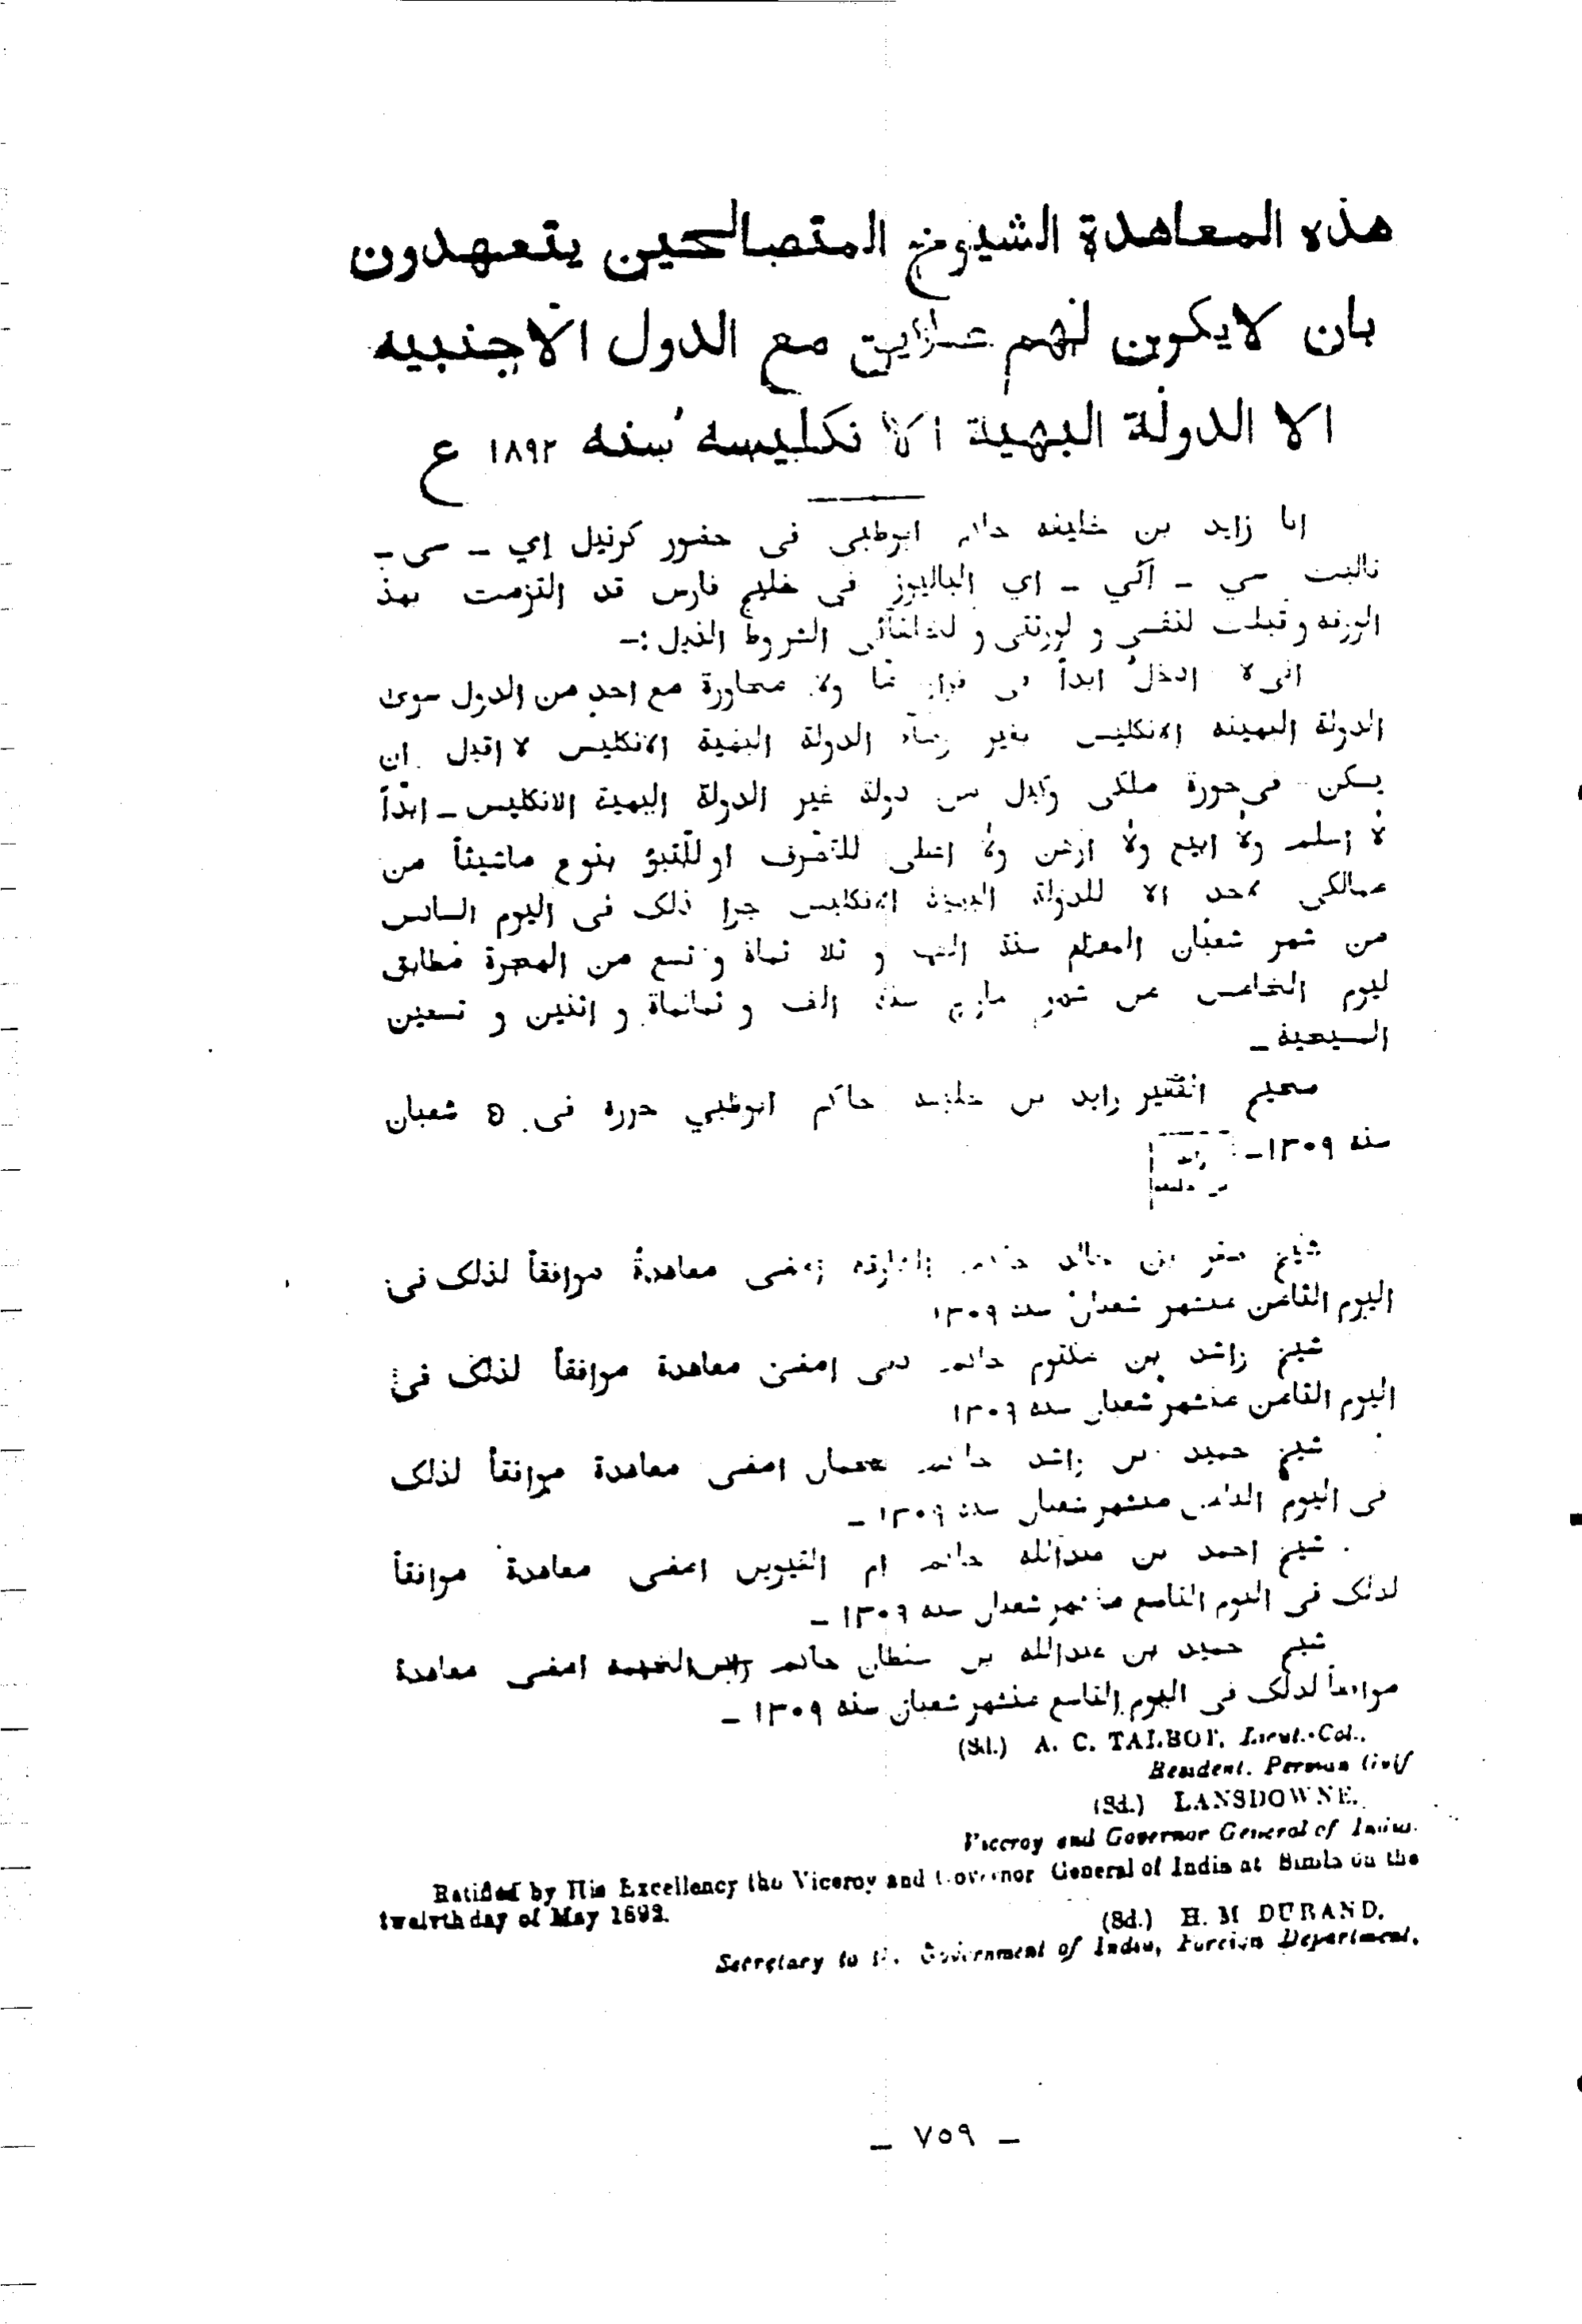 هذه المعاهدة الشيوخ المتصالحين يتعهدون
بان لايكون لهم مع الدول الاجنبيه
الا الدولة البهية الانكليسه سنه ١٨٩٢ ع
انا زايد بن خليفه حاكم ابوظبي فى حضور كرنيل اي - سى -
تالبت سي - آئي - اي الباليوز فى خليج فارس قد التزمت بهذ
الورقه و قبلت لنفسي و لورثتى و لخلفائى الشروط الذيل :-
انى لا ادخل ابداً فى ما ولا محاورة مع احد من الدول سوى
الدولة البهيته الانكليس بغير رضاء الدولة البهية الانكليس لا اقبل ان
يسكن فى حوزة ملكى وكيل من دولة غير الدولة البهية الانكليس - ابداً
لا اسلم ولا ابيع ولا ارهن ولا اعطى للتصرف او بنوع ماشيئاً من
ممالكى لاحد الا للدولة البهية الانكليس جرا ذلك فى اليوم السادس
من شهر شعبان المعظم سنة الف و ثلا ثماة و تسع من الهجرة مطابق
ليوم الخامس من شهر مارچ سنة الف و ثمانماة و اثنين و تسعين
المسيحية -
صحيح زايد بن خليفه حاكم ابوظبي حرره فى ٥ شعبان
سنة ١٣٠٩ -
زايد
بن خليفه
شيخ صقر بن خالد حاكم الشارقه امضى معاهدة موافقاً لذلك فى
اليوم الثامن منشهر شعبان سنه ١٣٠٩
شيخ راشد بن مكتوم حاكم دبى امضى معاهدة موافقاً لذلك فى
اليوم الثامن منشهر شعبان سنه ١٣٠٩
شيخ حميد بن راشد حاكم عجمان امضى معاهدة موافقاً لذلك
فى اليوم الثامن منشهر شعبان سنة ١٣٠٩ -
شيخ احمد بن عبدالله حاكم ام القيوين امضى معاهدة موافقاً
لذلك فى اليوم التاسع منشهر شعبان سنه ١٣٠٩ -
شيخ حميد بن عبدالله بن سلطان حاكم راس الخيمه امضى معاهدة
موافقاً لذلك فى اليوم التاسع منشهر شعبان سنه ١٣٠٩ -
(Sd.) A. C. TALBOT, Lieut.-Col.,
Resident, Persian Gulf
(Sd.) LANSDOWNE,
Viceroy and Governor General of India.
Ratified by His Excellency the Viceroy and Governor General of India at Simla on the
twelfth day of May 1892.
(Sd.) H. M DURAND,
Secretary to the Government of India, Foreign Department.
- ٧٥٩ -